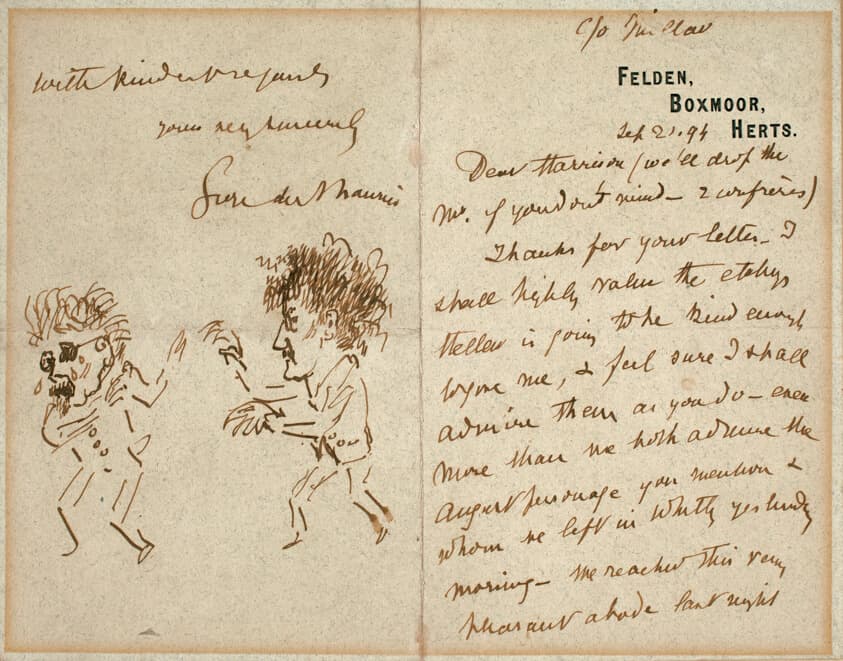 c/o
FELDEN,
BOXMOOR,
HERTS.
Sep 21. 94
Dear Harrison (we'll drop the
Mr. if you don't mind — 2 confrères)
Thanks for your letter — I
shall highly value the etchgs
Helleu is going to be kind enough
to give me, & feel sure I shall
admire them as you do — even
more than we both admire the
august personage you mention &
whom we left in Whitby yesterday
morning — We reached this very
pleasant abode last night
with kindest regards
yours very sincerely
du Maurier